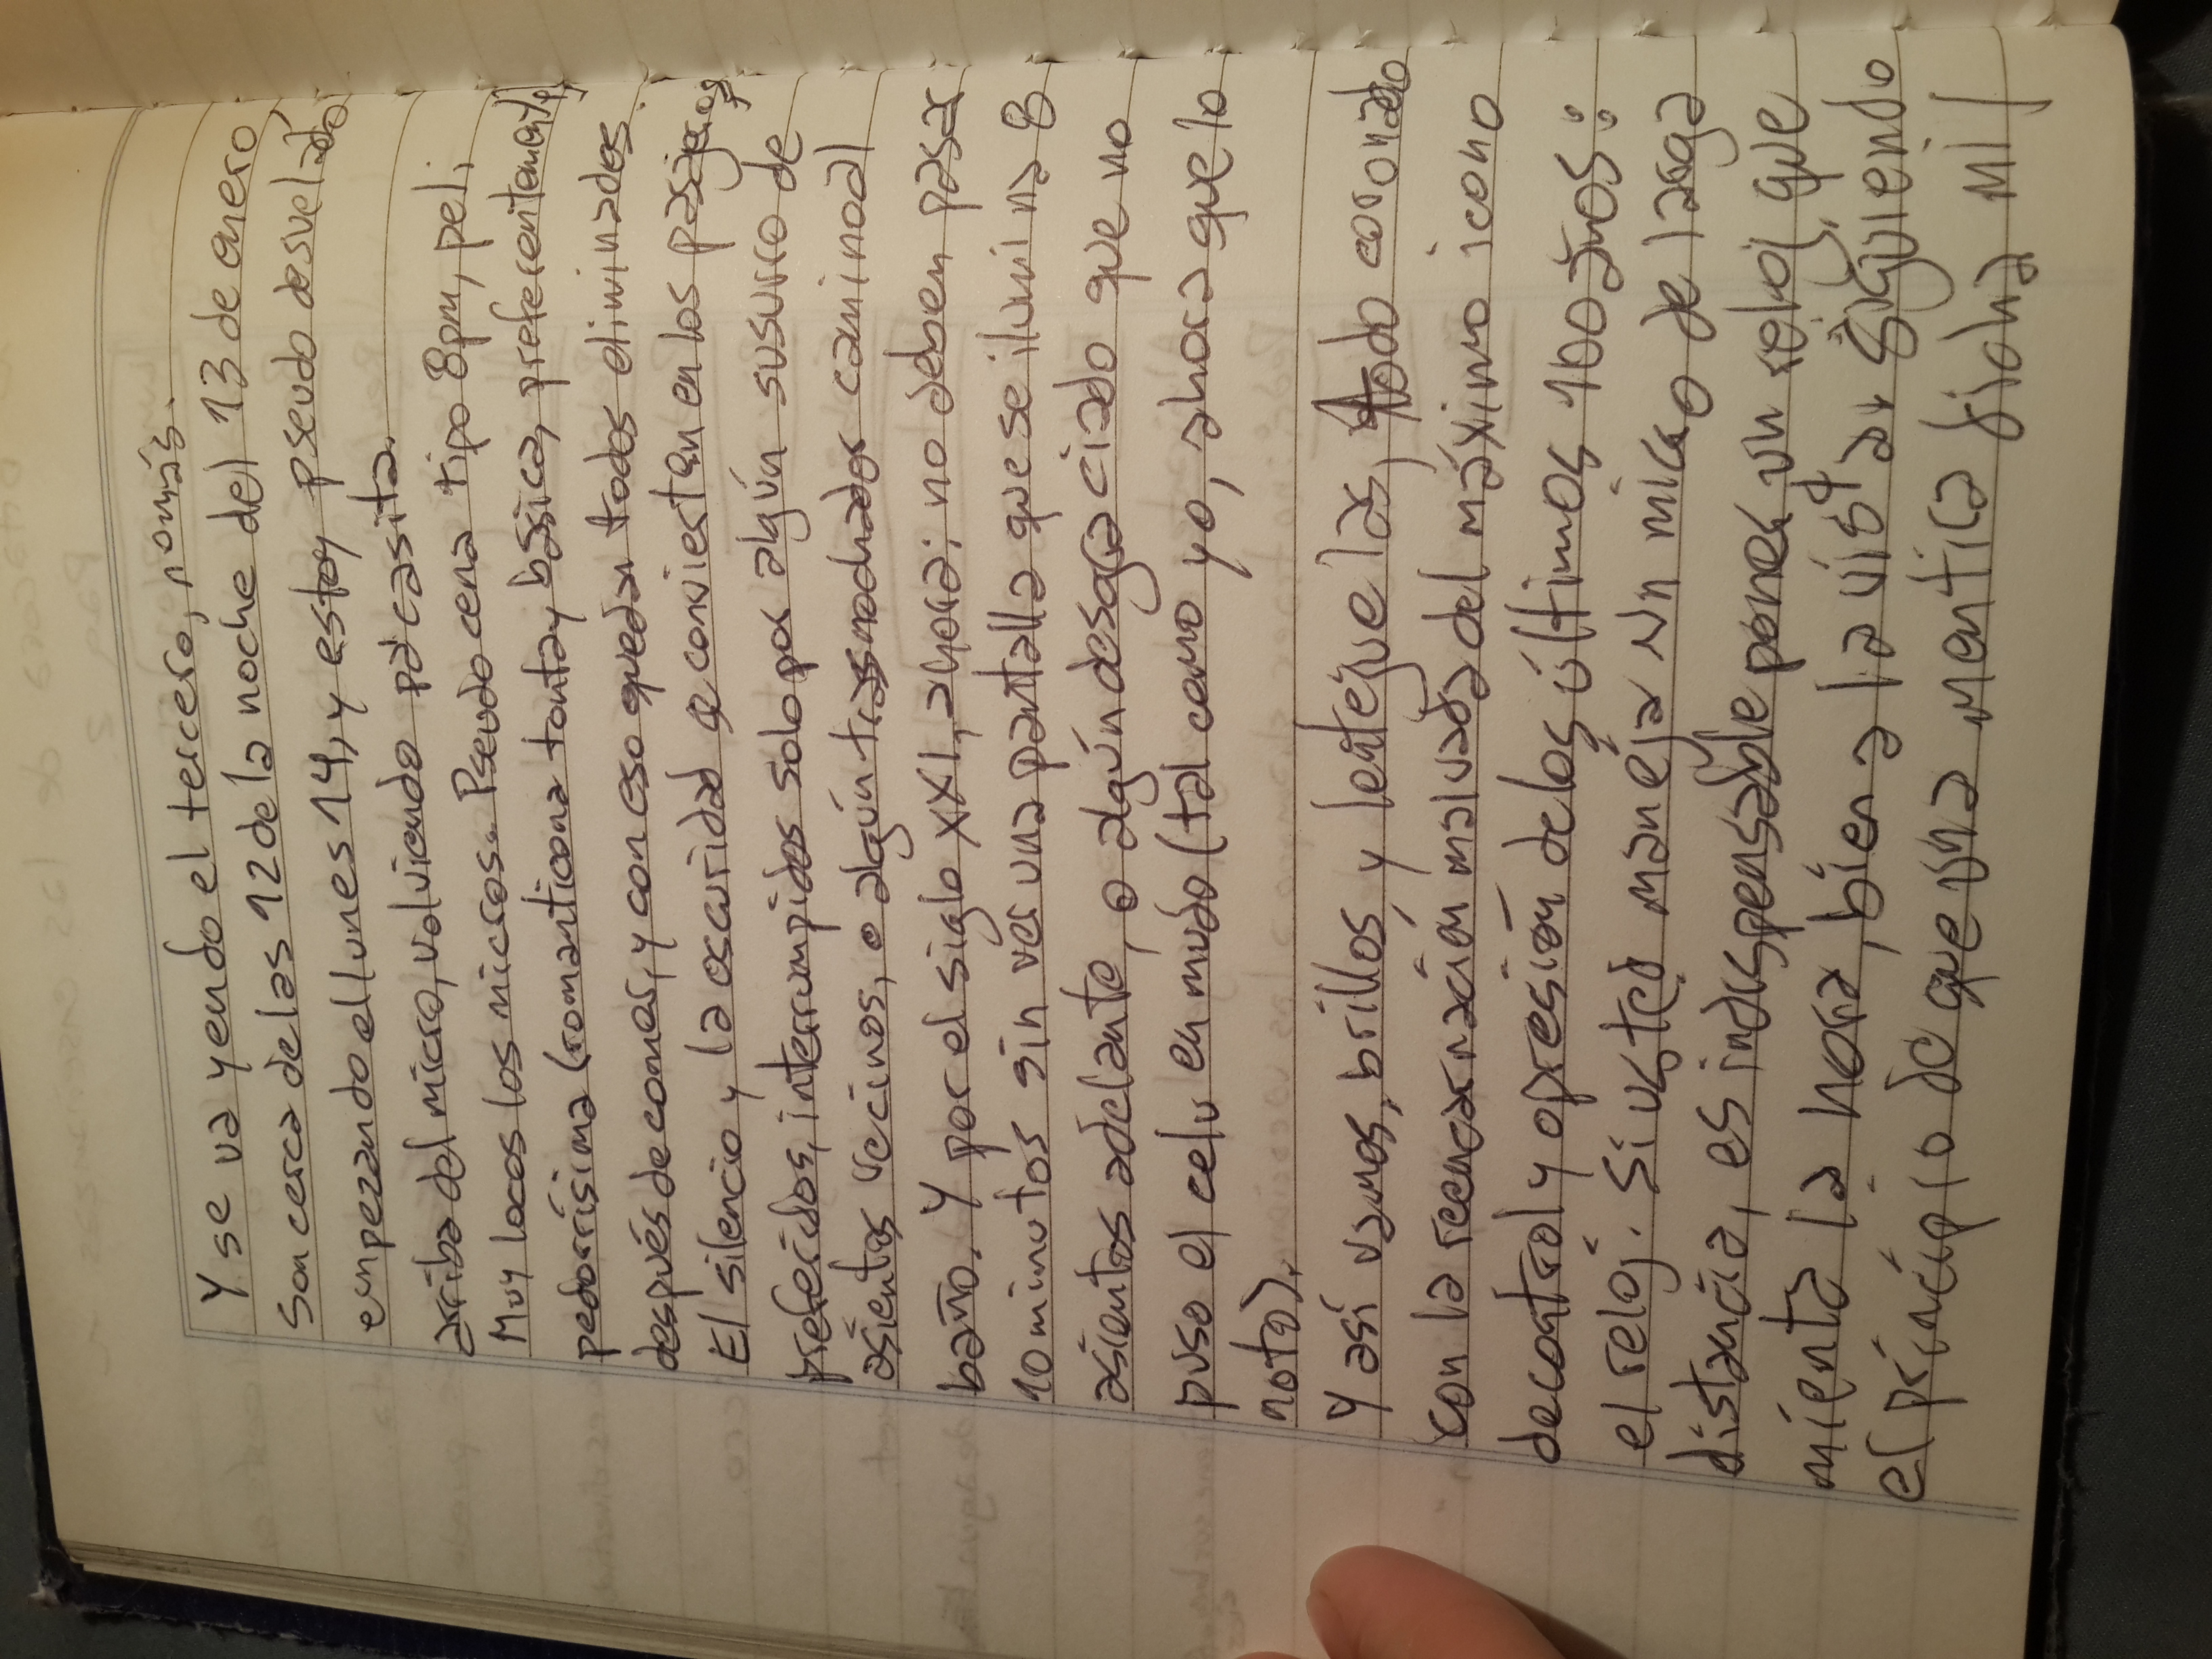 Y se va yendo el tercero, nomás.
Son cerca de las 12 de la noche del 13 de enero,
empezando el lunes 14, y estoy pseudo desvelado
arriba del micro, volviendo pa' casita.
Muy locos los micros. Pseudo cena tipo 8pm, peli
pedorrísima (romanticona tonta y básica, preferentemente)
después de comer, y con eso quedan todos eliminados.
El silencio y la oscuridad se convierten en los pasajeros
preferidos, interrumpidos solo por algún susurro de
asientos vecinos, o algún trasnochador camino al
baño. Y por el siglo XXI, ahora; no deben pasar
10 minutos sin ver una pantalla que se ilumina 8
asientos adelante, o algún desgraciado que no
puso el celu en mudo (tal como yo, ahora que lo
noto).
Y así vamos, brillos y lentejuelas, todo coronado
con la reencarnación malvada del máximo icono
de control y opresión de los últimos 100 años:
el reloj. Si usted maneja un micro de larga
distancia, es indispensable poner un reloj que
mienta la hora, bien a la vista. Siguiendo
el principio de que una mentira dicha mil